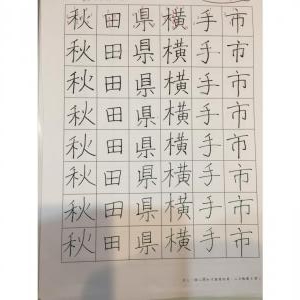 秋田県横手市
秋田県横手市
秋田県横手市
秋田県横手市
秋田県横手市
秋田県横手市
秋田県横手市
秋田県横手市